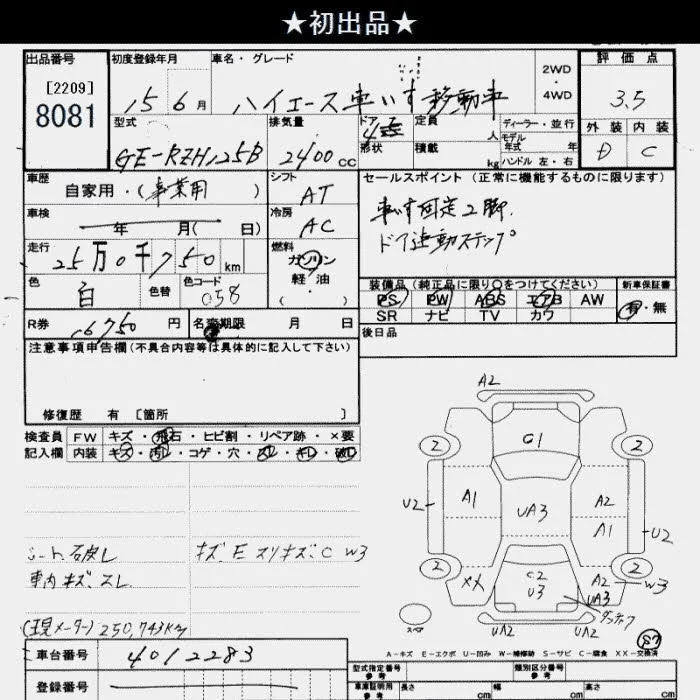 ★初出品★
出品番号 初度登録年月 車名・グレード 2WD・4WD 評価点
[2209]
8081
15 6月 ハイエース車いす移動車 3.5
型式 排気量 ドア 定員 人 ディーラー・並行 外装 内装
形状 積載 kg モデル年式 年
ハンドル 左・右
GE-RZH125B 2400cc D C
車歴 シフト セールスポイント (正常に機能するものに限ります)
自家用・(事業用) AT
車いす固定2脚.
車検 年 月( 日) 冷房 AC
ドア連動ステップ
走行 25万0千750km 燃料 ガソリン・軽油・( )
色 白 色替 色コード 058
装備品 (純正品に限り○をつけてください) 新車保証書
PS PW ABS エアB AW 有・無
SR ナビ TV カワ
R券 6750円 名変期限 月 日
後日品
注意事項申告欄(不具合内容等は具体的に記入して下さい)
修復歴 有 [箇所 ]
検査員記入欄 FW キズ・飛石・ヒビ割・リペア跡・×要
内装 キズ・汚レ・コゲ・穴・スレ・キレ・破レ
A2
2 G1 2
U2 A1 UA3 A2
A1 U2
2 XX C2 U3 A2 UA3 2 W3
スペア UA2 UA2 S7
シート破レ キズ、E スリキズ、C W3
車内キズ、スレ
(現メーター)250,743Km
A-キズ E-エクボ U-凹み W-補修跡 S-サビ C-腐食 XX-交換済
車台番号 4012283
登録番号
型式指定番号 参考 類別区分番号 参考
車庫証明用 参考 長さ cm 幅 cm 高さ cm